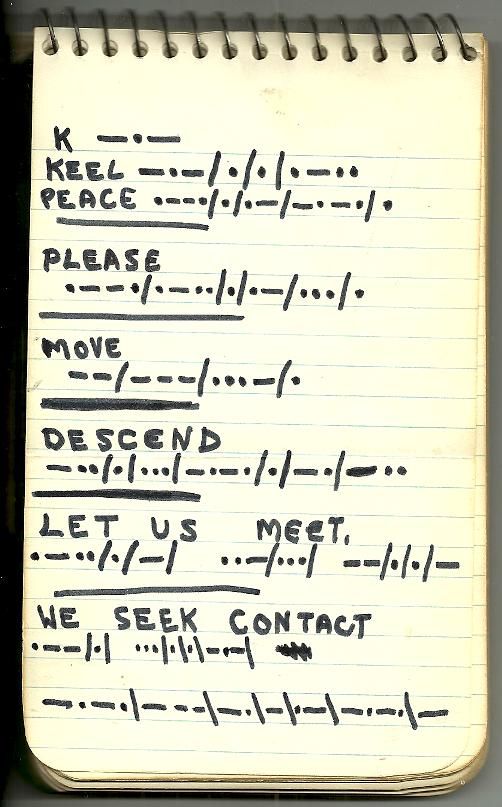 K —•—
KEEL —•—/•/•/•—••
PEACE •——•/•/•—/—•—•/•
PLEASE
•——•/•—••/•/•—/•••/•
MOVE
——/———/•••—/•
DESCEND
—••/•/•••/—•—•/•/—•/—••
LET US MEET.
•—••/•/—/ ••—/•••/ ——/•/•/—
WE SEEK CONTACT
•——/•/ •••/•/•/—•—/
—•—•/———/—•/—/•—/—•—•/—